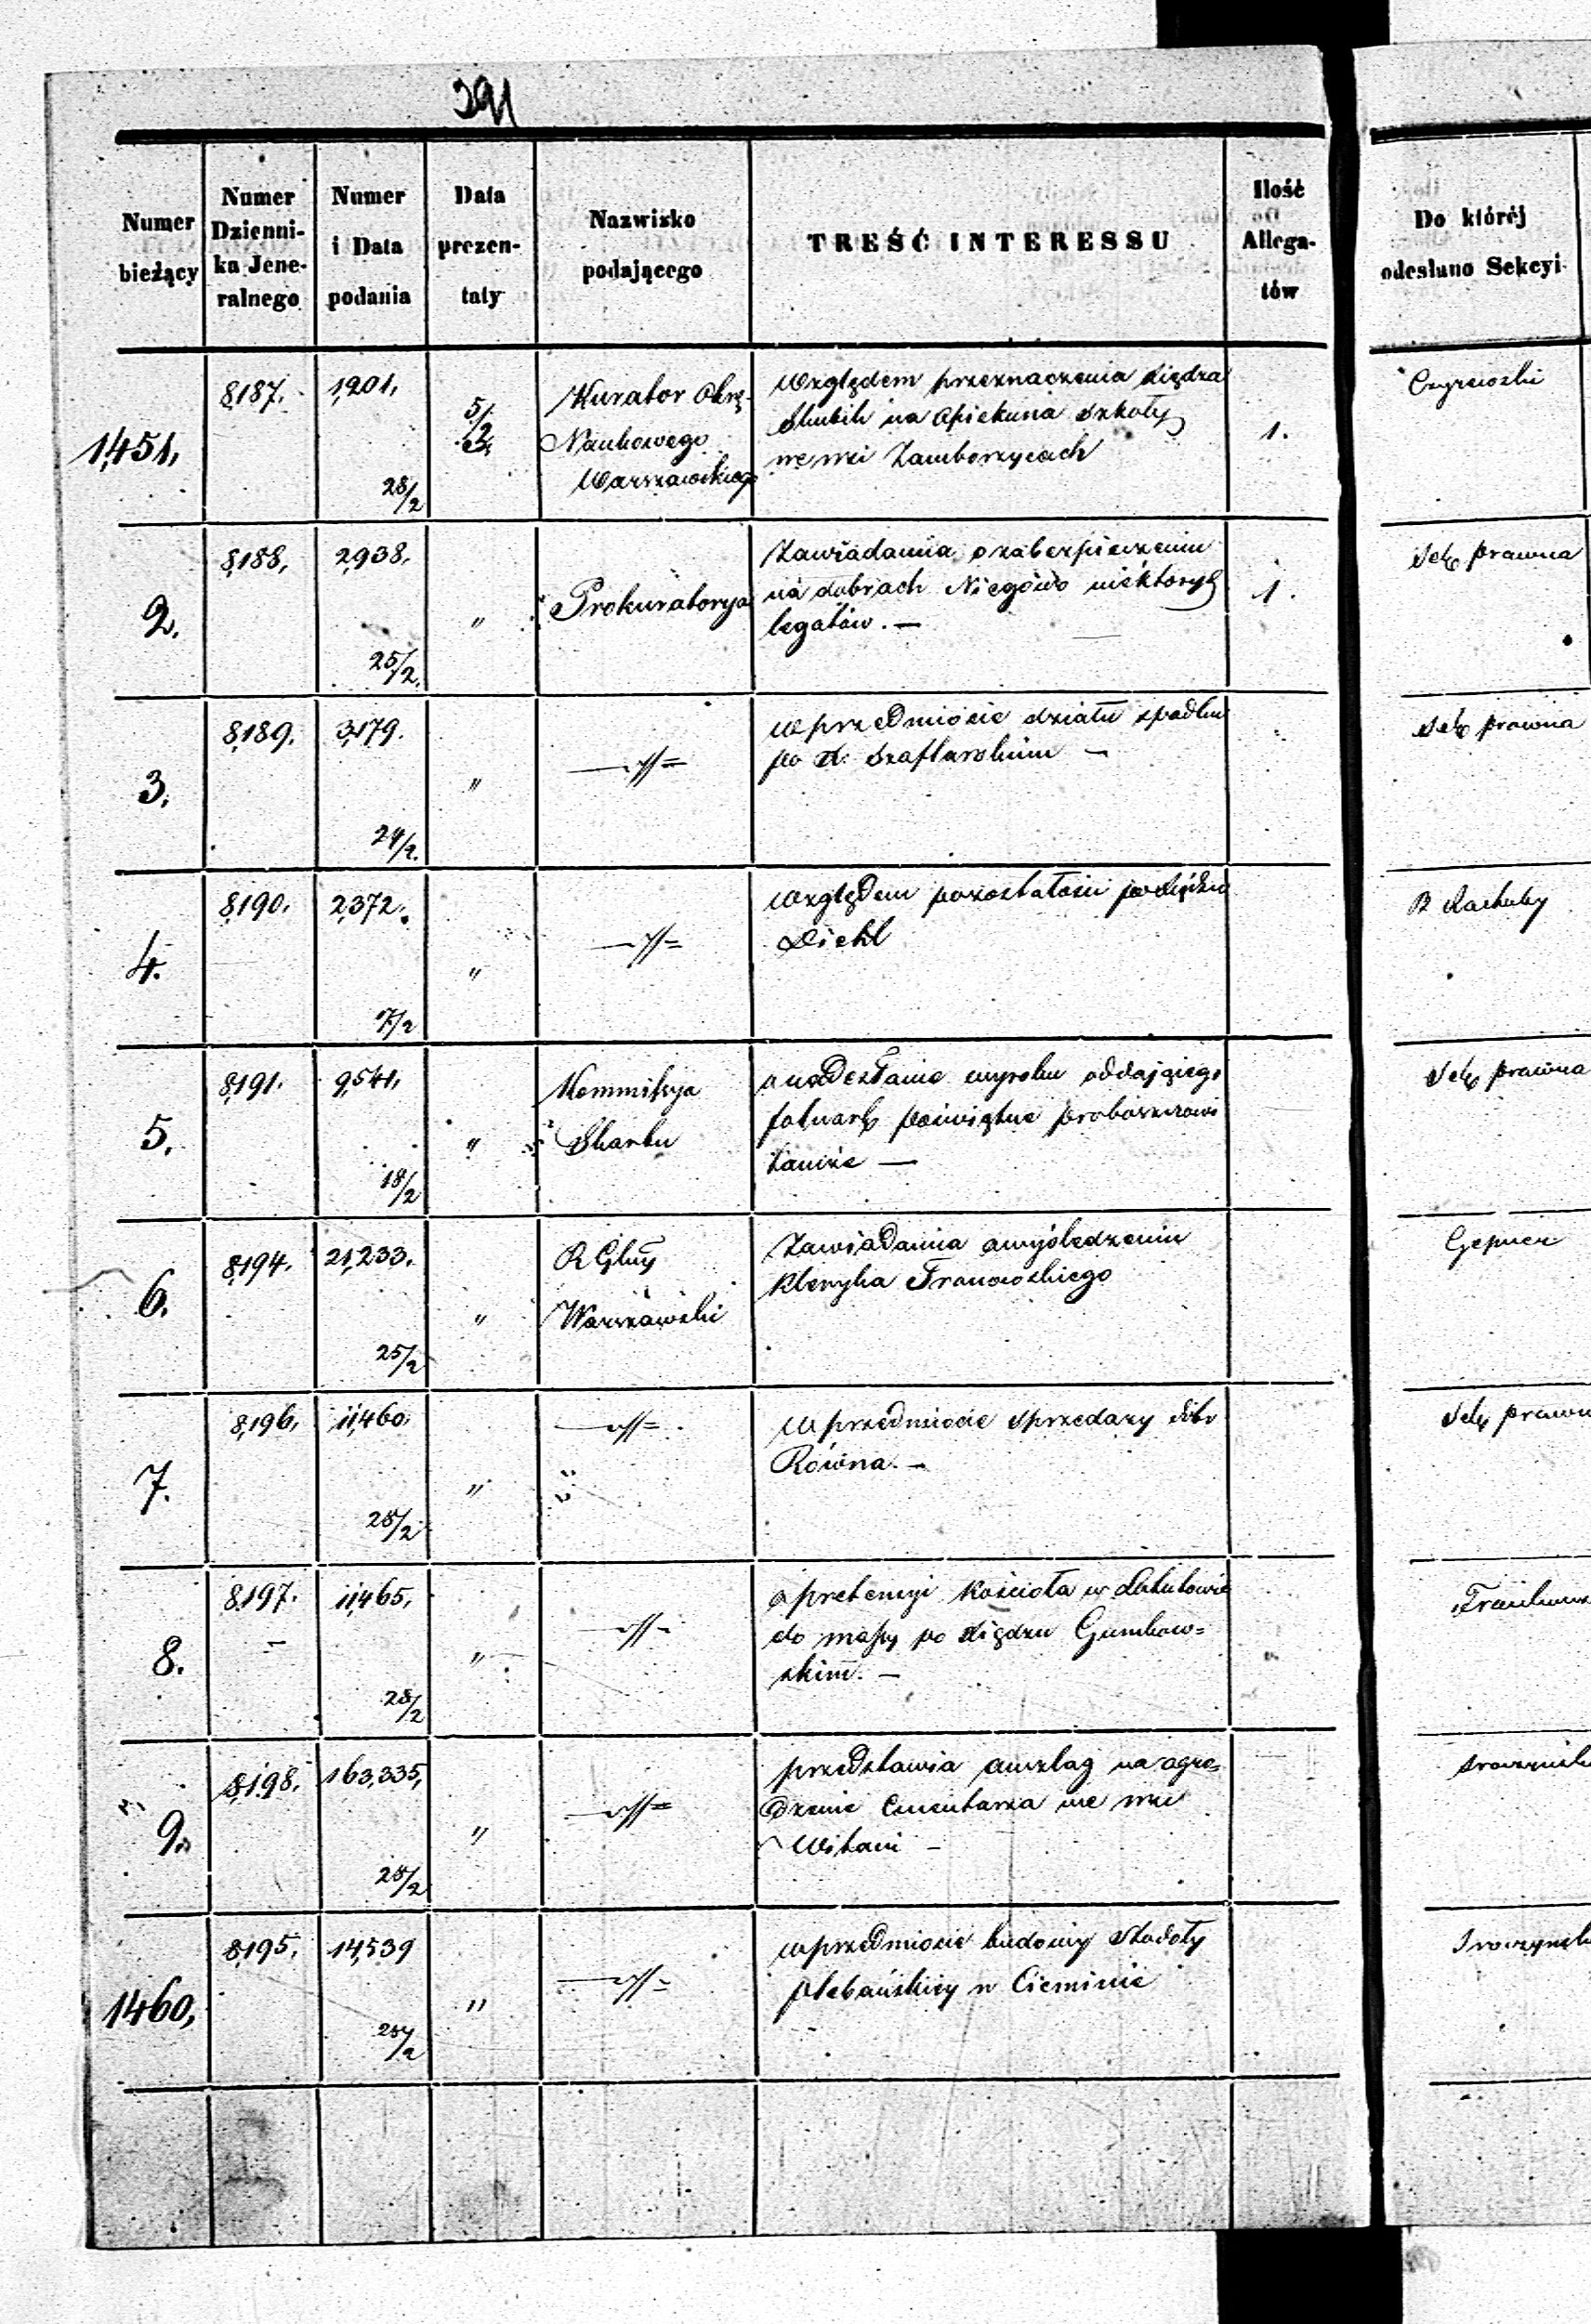 391
Numer bieżący
Numer Dzienni- ka Jene- ralnego
Numer i Data podania
Data prezen- taty
Nazwisko podającego
TREŚĆ INTERESSU
Ilość Allega- tów
Do któréj odesłano Sekcyi
1,451,
8,187.
1,201,
28/2
5/3
Kurator Okrę-
Naukowego
Warszawskiego
Względem przeznaczenia Xiędza
na Opiekuna Szkoły
we wsi Zemborzycach
1.
2.
8,188,
2,938.
25/2.
"
Prokuratorya
Zawiadamia o zabezpieczeniu
na dobrach Niegowo niektórych
legatów. —
1.
Sek prawna
3,
8,189.
3,179.
24/2.
"
—//=
w przedmiocie działu spadku
po X. Szaflarskim —
Sek prawna
4.
8,190.
2,372.
7/2
"
—//=
Względem pozostałości po Xiędzu
Diehl
R Rachuby
5.
8,191.
9,541,
18/2
"
Kommissya
Skarbu
o nadesłanie wyroku oddającego
folwark poświętne proboszczowi
—
Sek prawna
6.
8,194.
21,233.
25/2
"
R Gbny
Warszawski
Zawiadamia o wyśledzeniu
Kleryka Franowskiego
Gepner
7.
8,196,
11,460,
25/2
"
—//=
w przedmiocie sprzedaży dóbr
Równa. —
Sek prawn
8.
8,197.
11,465,
25/2
"
—//=
o pretensyi Kościoła w
do massy po Xiędzu Gumkow=
skim. —
9.
8,198.
163,335,
25/2
"
—//=
przedstawia anszlag na ogro=
dzenie Cmentarza we wsi
Witani —
1460,
8,195.
14,539
25/2
"
—//=
w przedmiocie budowy Stodoły
plebańskiey w Cieminie